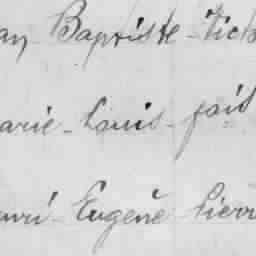 an Baptiste - Vict
arie - Louis - fait
enri - Eugène - Pierr